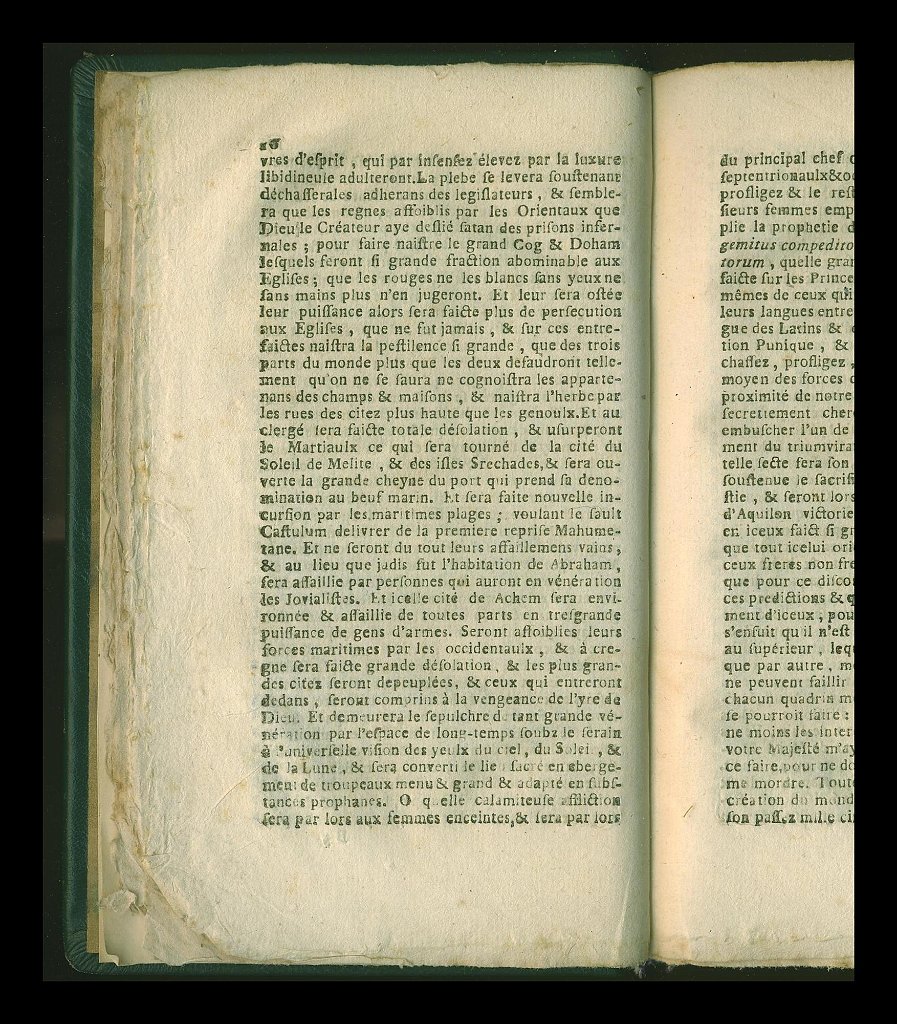 26
vres d'eſprit , qui par inſenſez élevez par la luxure
libidineuſe adulteront.La plebe ſe levera ſouſtenant
déchaſſerales adherans des legiſlateurs , & ſemble-
ra que les regnes affoiblis par les Orientaux que
Dieu le Créateur aye deſlié ſatan des priſons infer-
nales ; pour faire naiſtre le grand Cog & Doham
leſquels feront ſi grande fraction abominable aux
Egliſes ; que les rouges ne les blancs ſans yeux ne
ſans mains plus n'en jugeront. Et leur ſera oſtée
leur puiſſance alors ſera faicte plus de perſecution
aux Egliſes , que ne fut jamais , & ſur ces entre-
faictes naiſtra la peſtilence ſi grande , que des trois
parts du monde plus que les deux defaudront telle-
ment qu'on ne ſe ſaura ne cognoiſtra les apparte-
nans des champs & maiſons , & naiſtra l'herbe par
les rues des citez plus haute que les genoulx.Et au
clergé ſera faicte totale déſolation , & uſurperont
le Martiaulx ce qui ſera tourné de la cité du
Soleil de Melite , & des iſles Srechades,& ſera ou-
verte la grande cheyne du port qui prend ſa deno-
mination au beuf marin. Et ſera faite nouvelle in-
curſion par les maritimes plages ; voulant le ſault
Caſtulum delivrer de la premiere repriſe Mahume-
tane. Et ne ſeront du tout leurs aſſaillemens vains,
& au lieu que jadis fut l'habitation de Abraham ,
ſera aſſaillie par perſonnes qui auront en vénération
les Jovialiſtes. Et icelle cité de Achem ſera envi-
ronnée & aſſaillie de toutes parts en treſgrande
puiſſance de gens d'armes. Seront affoiblies leurs
forces maritimes par les occidentaulx , & à cre-
gne ſera faicte grande déſolation , & les plus gran-
des citez ſeront depeuplées, & ceux qui entreront
dedans , ſeront comprins à la vengeance de l'yre de
Dieu. Et demeurera le ſepulchre de tant grande vé-
nération par l'eſpace de long-temps ſoubz le ſerain
à l'univerſelle viſion des yeulx du ciel, du Soleil , &
de la Lune , & ſera converti le lieu ſacré en eberge-
ment de troupeaux menu & grand & adapté en ſubſ-
tances prophanes. O quelle calamiteuſe affliction
ſera par lors aux femmes enceintes,& ſera par lors
du principal chef
ſeptentrionaulx&
profligez & le
ſieurs femmes
plie la prophetie
gemitus
torum , quelle
faicte ſur les
mêmes de ceux
leurs langues
gue des Latins &
tion Punique , &
chaſſez , profligez ,
moyen des forces
proximité de notre
ſecrettement
embuſcher l'un de
ment du
telle ſecte ſera ſon
ſouſtenue le
ſtie , & ſeront lors
d'Aquilon
en iceux faict ſi
que tout icelui
ceux freres non
que pour ce
ces predictions &
ment d'iceux ,
s'enſuit qu il n'eſt
au ſupérieur ,
que par autre ,
ne peuvent faillir
chacun quadrin
ſe pourroit faire :
ne moins les
votre Majeſté
ce faire,pour ne
me mordre.
création du
ſon paſſez mille